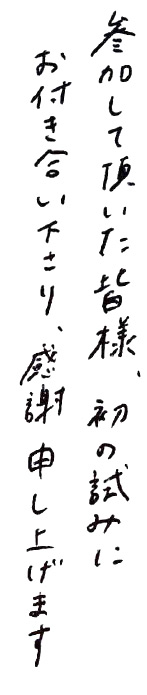 参加して頂いた皆様、初の試みに
お付き合い下さり、感謝申し上げます